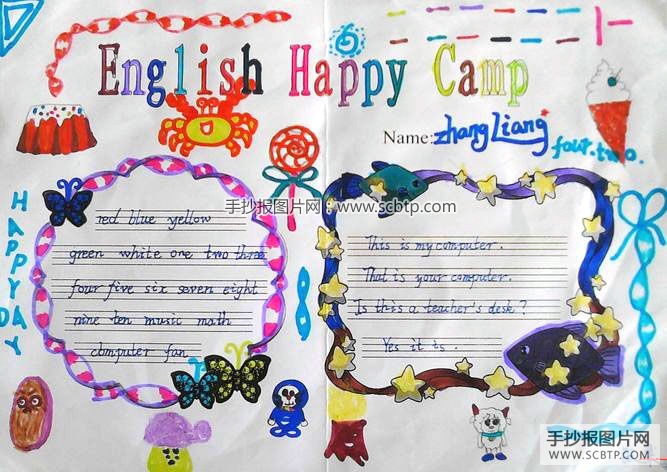 English Happy Camp
Name: zhang Liang
four.two.
HAPPY DAY
手抄报图片网：www.scbtp.com
red blue yellow
green white one two three
four five six seven eight
nine ten music math
computer fan
This is my computer.
That is your computer.
Is this a teacher's desk?
Yes it is.
手抄报图片网
WWW.SCBTP.COM